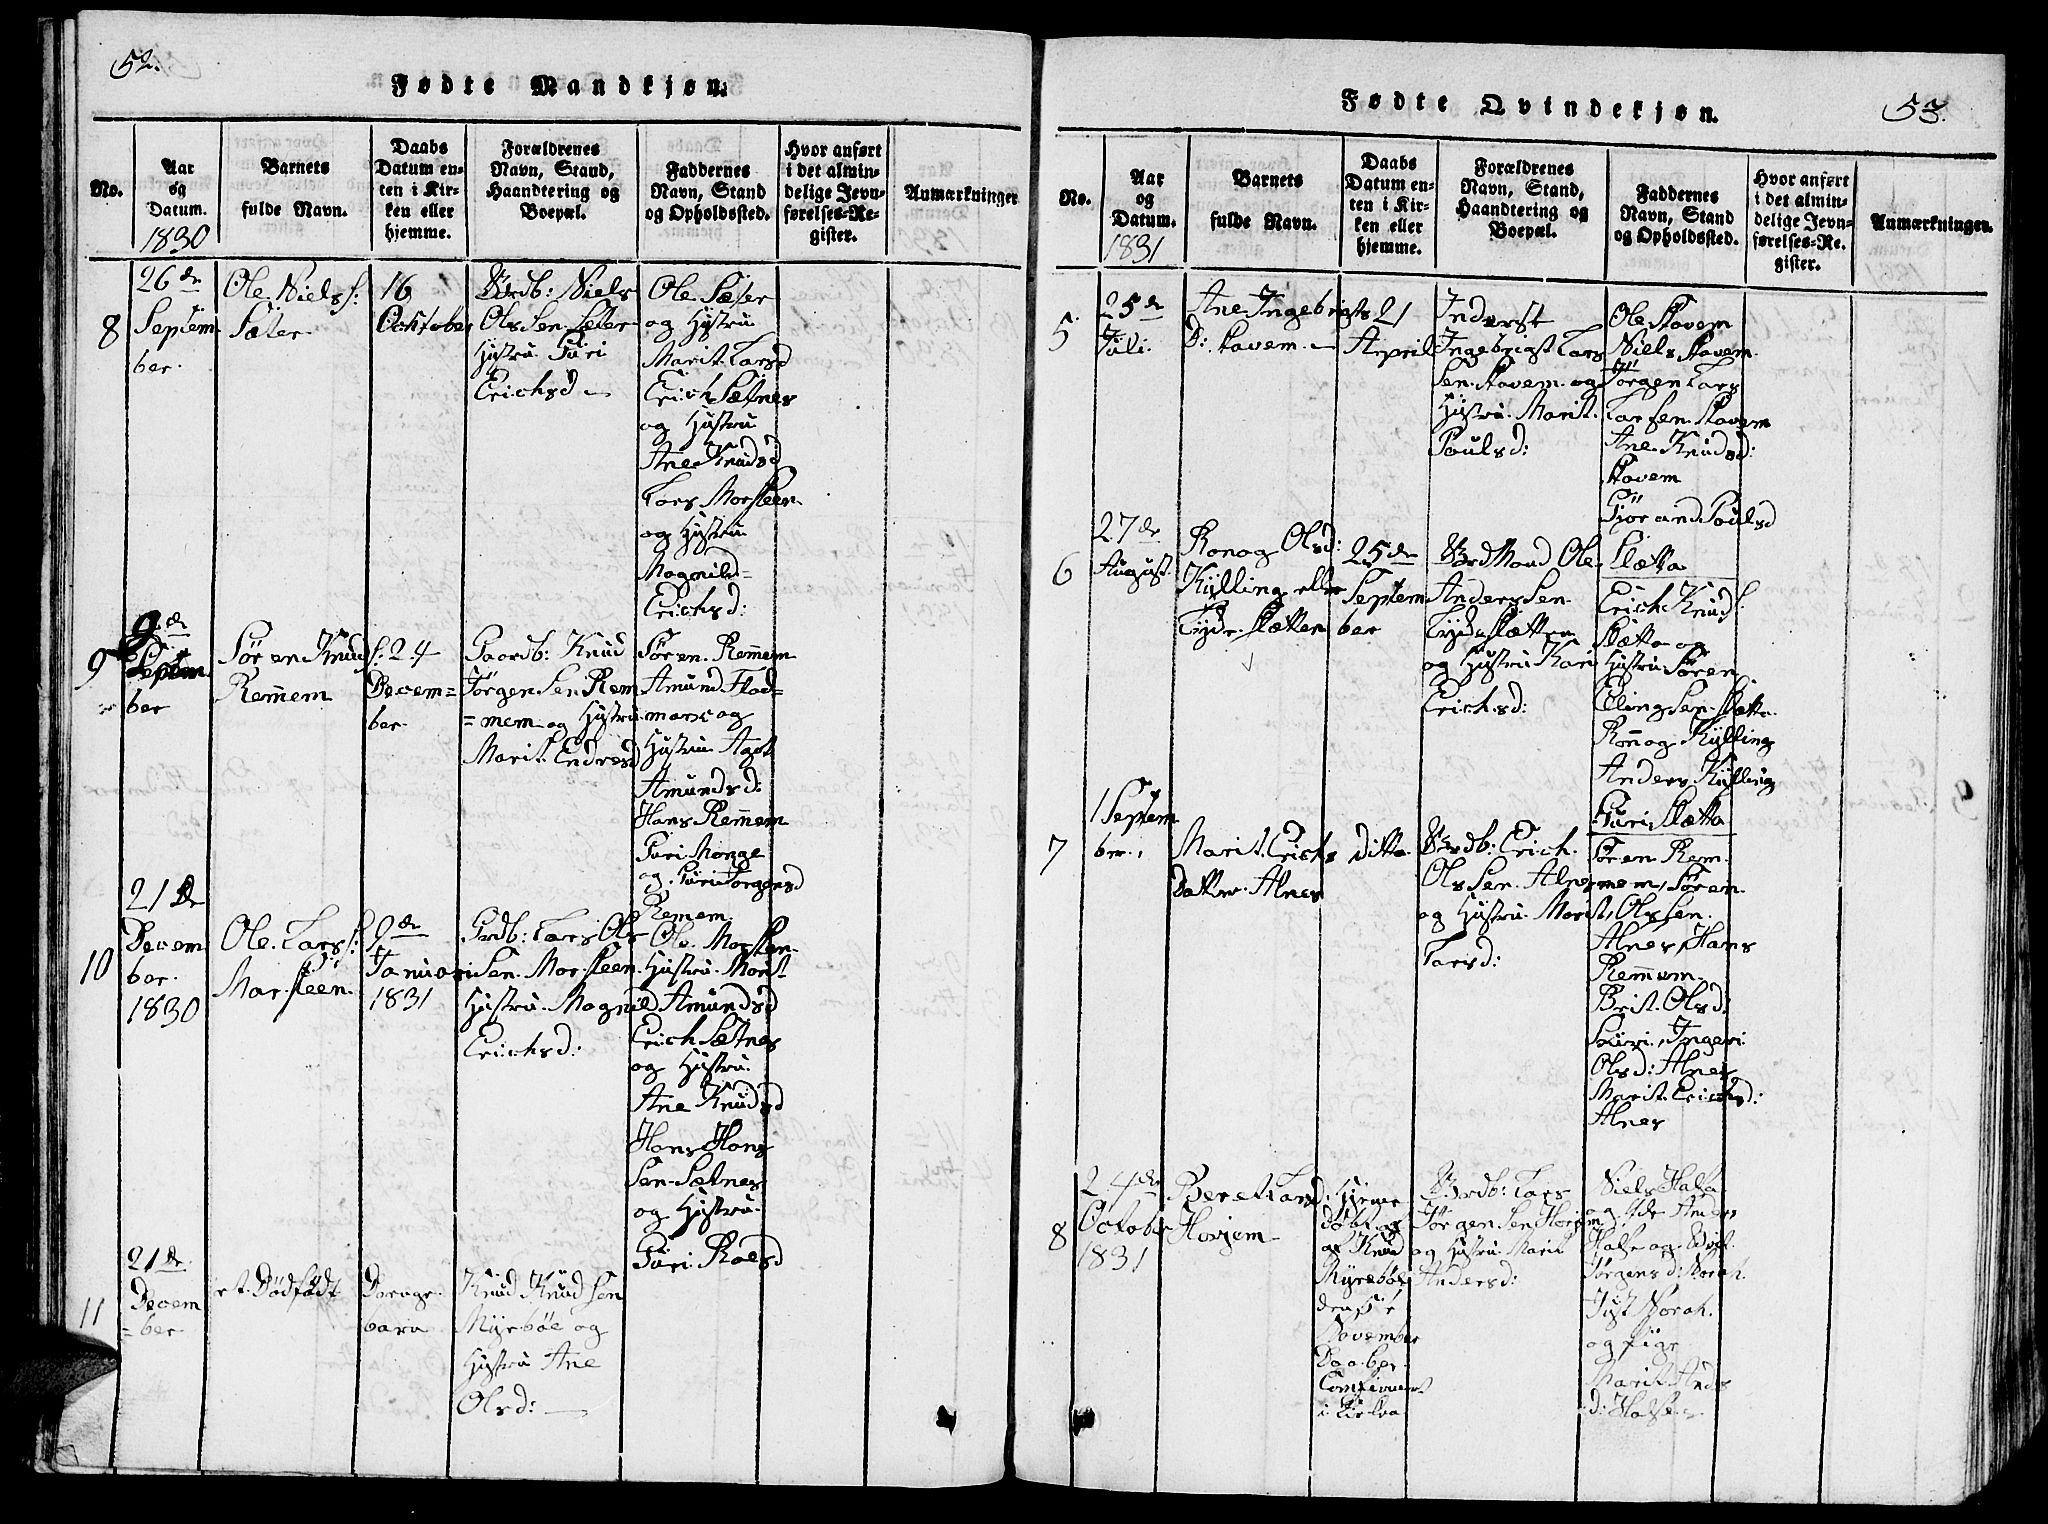 52.
Fødte Mandkjøn.
No.
Aar
og
Datum.
1830
Barnets
fulde Navn.
Daabs
Datum en-
ten i Kir-
ken eller
hjemme.
Forældrenes
Navn, Stand,
Haandtering og
Boepæl.
Faddernes
Navn, Stand
og Opholdssted.
Hvor anført
i det almin-
delige Jevn-
førelses-Re-
gister.
Anmærkninger
8
26de
Septem
ber.
Ole Niels s:
Sæter
16
October
Niels
Ols Sen Sæter
Hustru Guri
Erichsd
Ole Sæter
og Hustru
Marit Larsd
Erich Sætnes
og Hustru
Ane Knudsd
Lars Marsteen
og Hustru
Magnild
Erichsd:
9
9de
Septem
ber
Søren Knud s:
Remem
24
Decem=
ber
Gaardb: Knud
Jørgen Sen Rem
=mem og Hustru
Marit Endresd
Søren Remem
Amund Flad=
mark og
Hustru Agot
Amundsd:
Hans Remem
Guri Monge
og Guri Jørgensd
Remem
10
21de
Decem
ber.
1830
Ole Lars s:
Marsteen
9de
Januari
1831
Grdb: Lars Ols
Sen Marsteen
Hustru Magnild
Erichsd:
Ole Marsteen
Hustru Marit
Amundsd
Erich Sætnes
og Hustru
Ane Knudsd
Hans Hans
Sen Sætnes
og Hustru
Guri Roesd
11
21de
Decem
=ber
et Dødfødt
barn
Knud Knudsen
Myrbøe og
Hustru Ane
Olsd:
53.
Fødte Qvindekjøn.
No.
Aar
og
Datum.
1831
Barnets
fulde Navn.
Daabs
Datum en-
ten i Kir-
ken eller
hjemme.
Forældrenes
Navn, Stand,
Haandtering og
Boepæl.
Faddernes
Navn, Stand
og Opholdssted.
Hvor anført
i det almin-
delige Jevn-
førelses-Re-
gister.
Anmærkninger.
5
25de
Juli
Ane Ingebrigts
D: Stavem
21
April
Inderst
Ingebrigt Lars
Sen Stavem og
Hustru Marit
Poulsd:
Ole Stavem
Niels Stavem
Jørgen Lars
Larsen Stavem
Ane Knudsd:
Stavem
Gjorand Poulsd
Slætta
6
27de
August
Ronog Olsd:
Kylling eller
Slætten
25de
Septem
ber
Ole
Anders Sen
og Hustru Kari
Erichsd:
Erich Knud s:
Slætta og
Hustru Søren
Elling Sen Slætta
Ronnog Kylling
Anders Kylling
Guri Slætta
7
1 Septem
ber.
Marit Erichs
Datter Alnes
ditto
Erich
Ols Sen Alnes
og Hustru Marit
Larsd:
Søren Rem
mem, Søren
Ols Sen
Alnes, Hans
Remmem
Brit Olsd:
Ingeri
Olsd: Alnes
Marit Erichsd:
Alnes
8
24de
October
1831
Beret Larsd:
Horjem
Hjeme
døbt
af Knud
Myrebøe
November
Daaben
i Kirken
Lars
Jørgen Sen Horjem
og Hustru Marit
Andersd:
Niels Halsa
og
Halse og
Jørgensd: Norah
Just Norah
og pige
Marit Anders
d: Halse